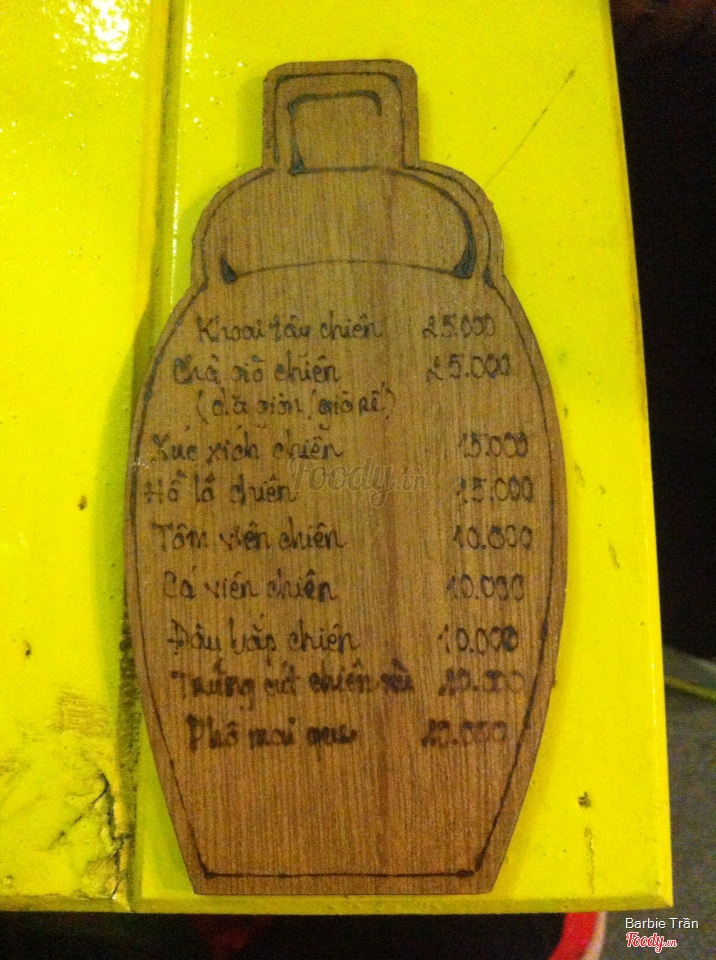 Khoai tây chiên 25.000
Chả giò chiên 25.000
(da giòn/giò rế)
Xúc xích chiên 15.000
Hồ lô chiên 15.000
Tôm viên chiên 10.000
Cá viên chiên 10.000
Đậu bắp chiên 10.000
Trứng cút chiên xù 10.000
Phô mai que 10.000
Foody.vn
Barbie Trần
Foody.vn